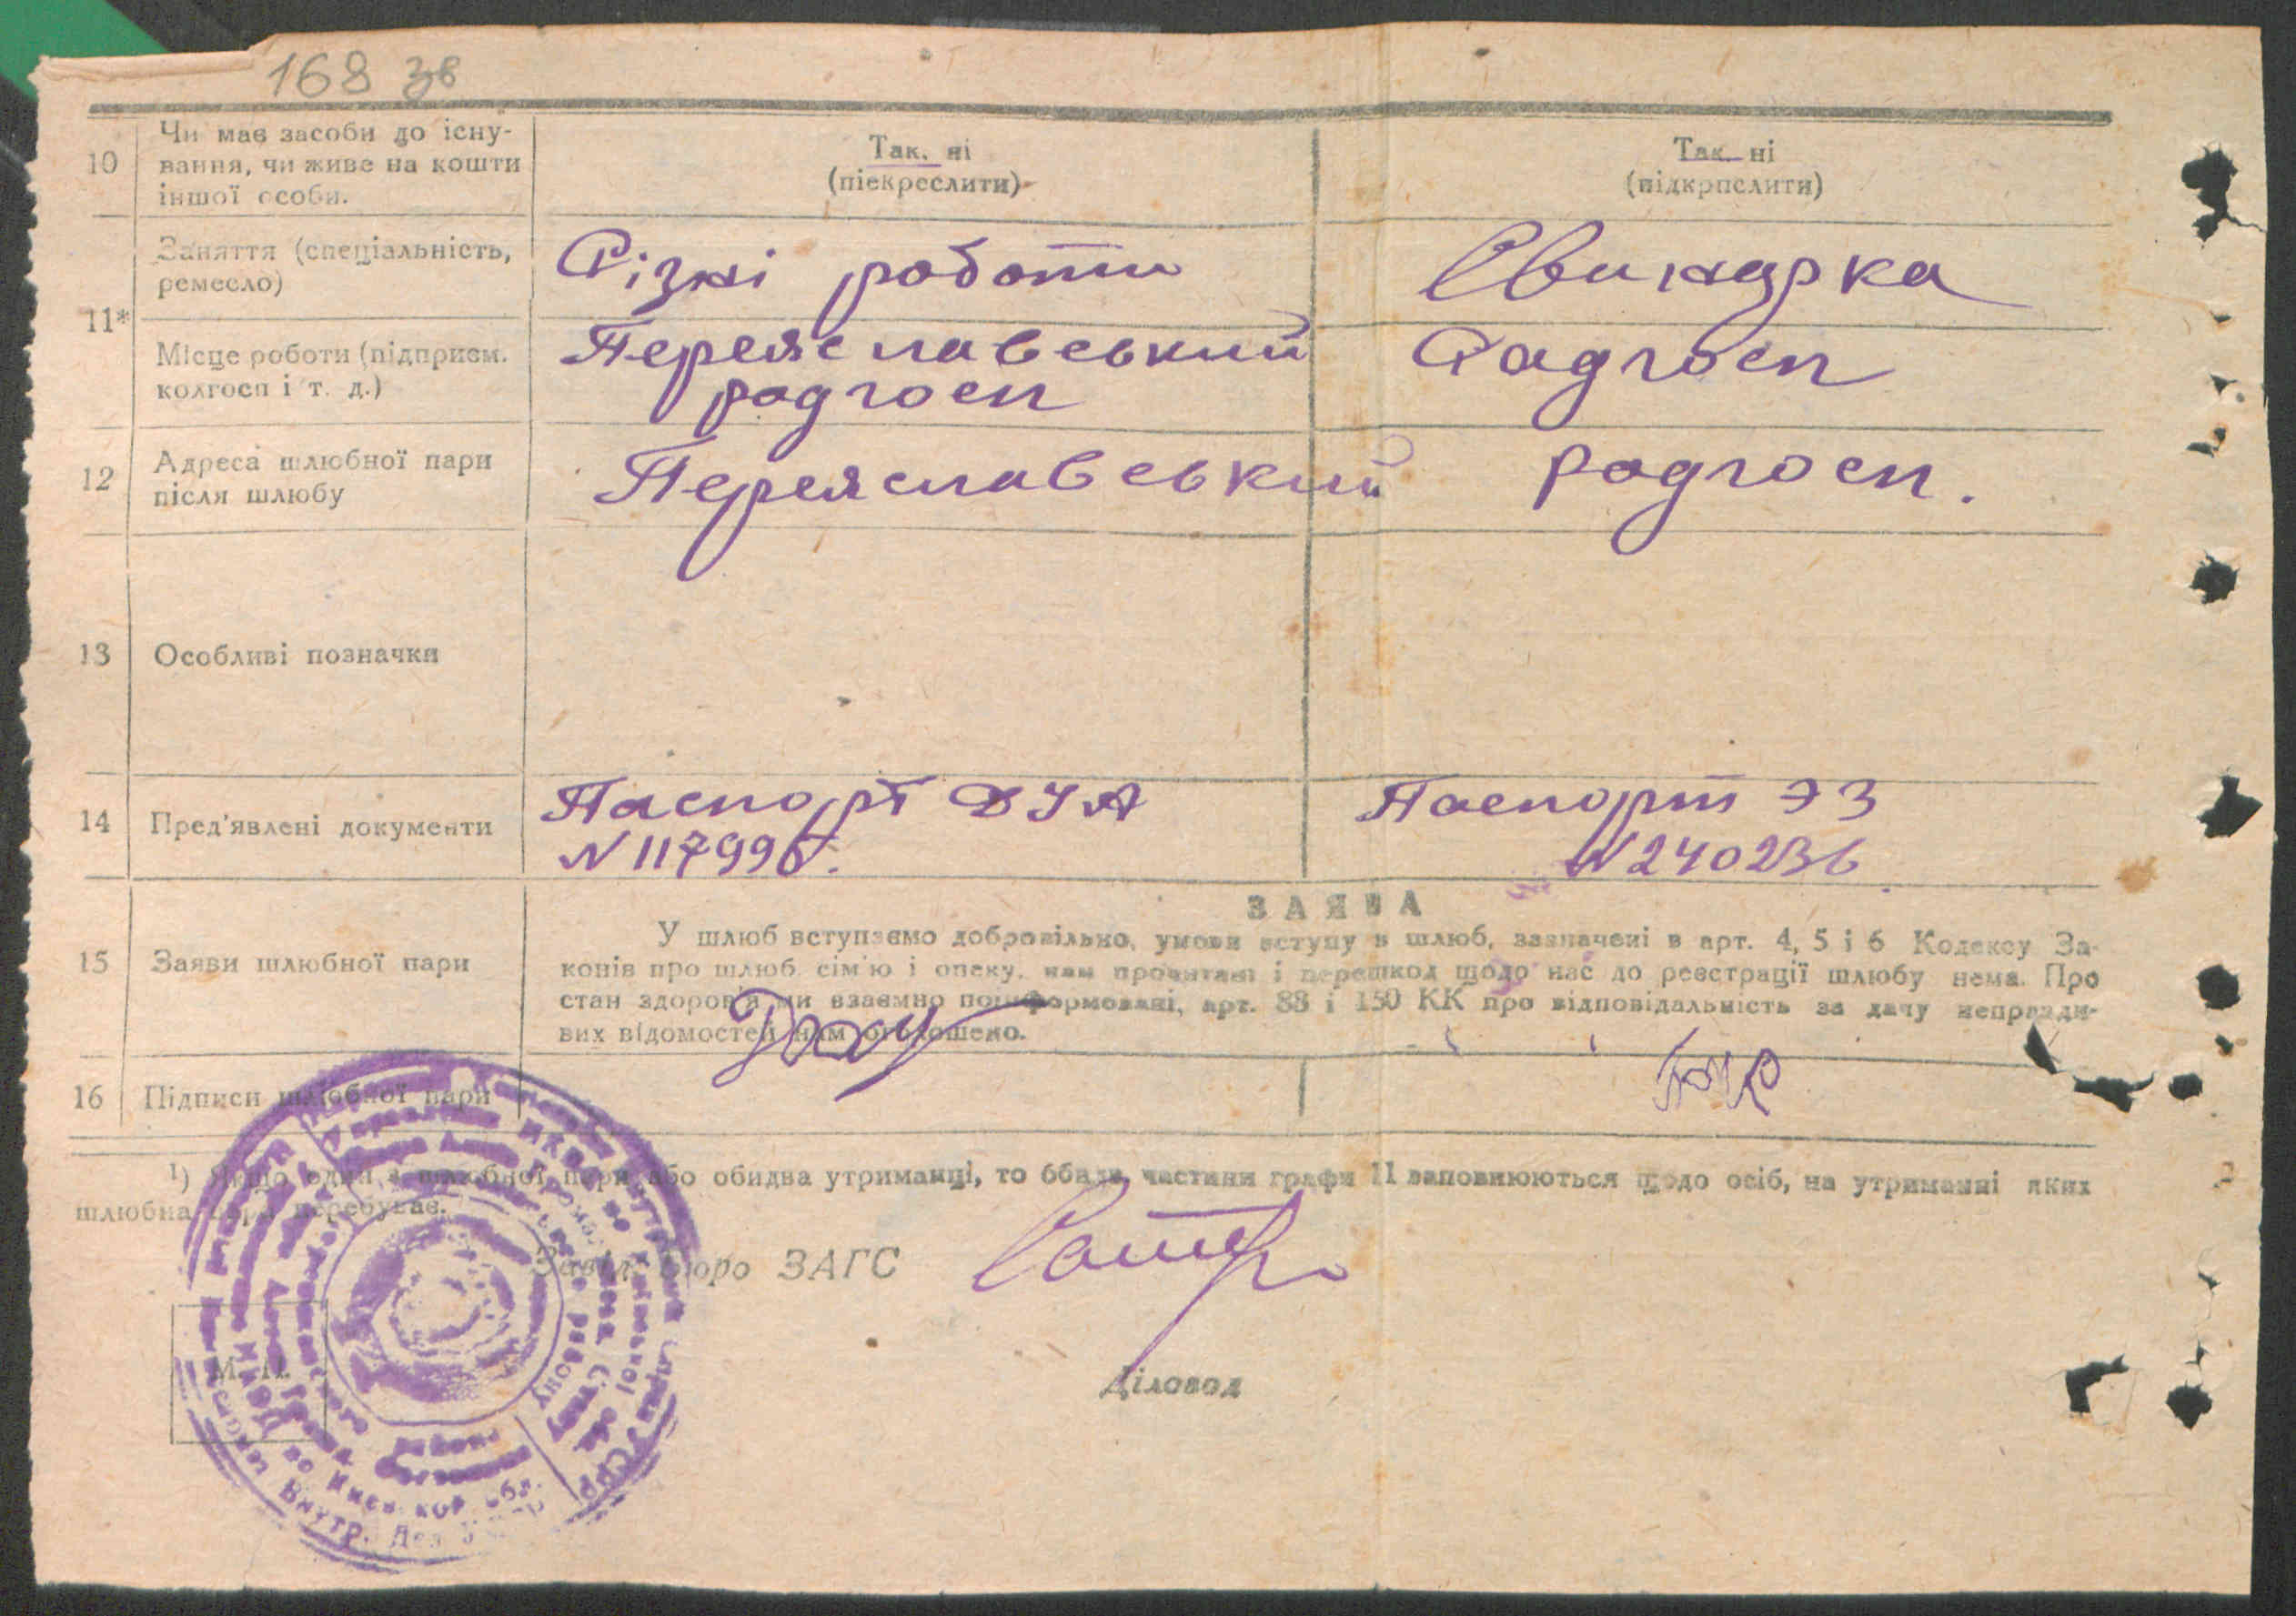 168 зв
10 Чи має засоби до існу-
вання, чи живе на кошти
іншої особи.
Так, ні
(піекреслити)
Так ні
(підкрпслити)
11*
Заняття (спеціальність,
ремесло)
Різні роботи
Свинарка
Місце роботи (підприєм.
колгосп і т. д.)
Переяславський
радгосп
Радгосп
12 Адреса шлюбної пари
після шлюбу
Переяславський радгосп.
13 Особливі позначки
14 Пред'явлені документи
Паспорт ДУА
N 117996.
Паспорт ЭЗ
N 240236
15 Заяви шлюбної пари
ЗАЯВА
У шлюб вступаємо добровільно, умови вступу в шлюб, зазначені в арт. 4, 5 і 6 Кодексу За-
конів про шлюб сім'ю і опеку, нам прочитані і перешкод щодо нас до реєстрації шлюбу нема. Про
стан здоров'я ми взаємно поінформовані, арт. 88 і 150 КК про відповідальність за дачу неправди-
вих відомостей нам оголошено.
16 Підписи шлюбної пари
1) Якщо один з шлюбної пари або обидва утриманці, то обидві частини графи 11 заповнюються щодо осіб, на утриманні яких
шлюбна пара перебуває.
Завід. Бюро ЗАГС
М. П.
Діловод